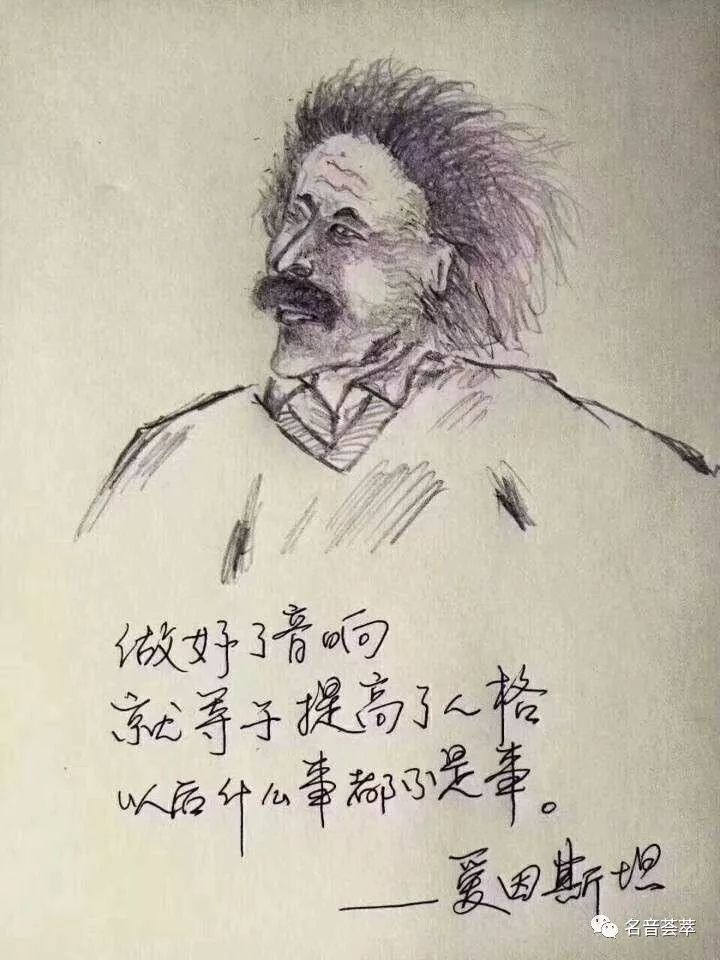 做好了音响
就等于提高了人格
以后什么事都不是事。
——爱因斯坦
名音荟萃